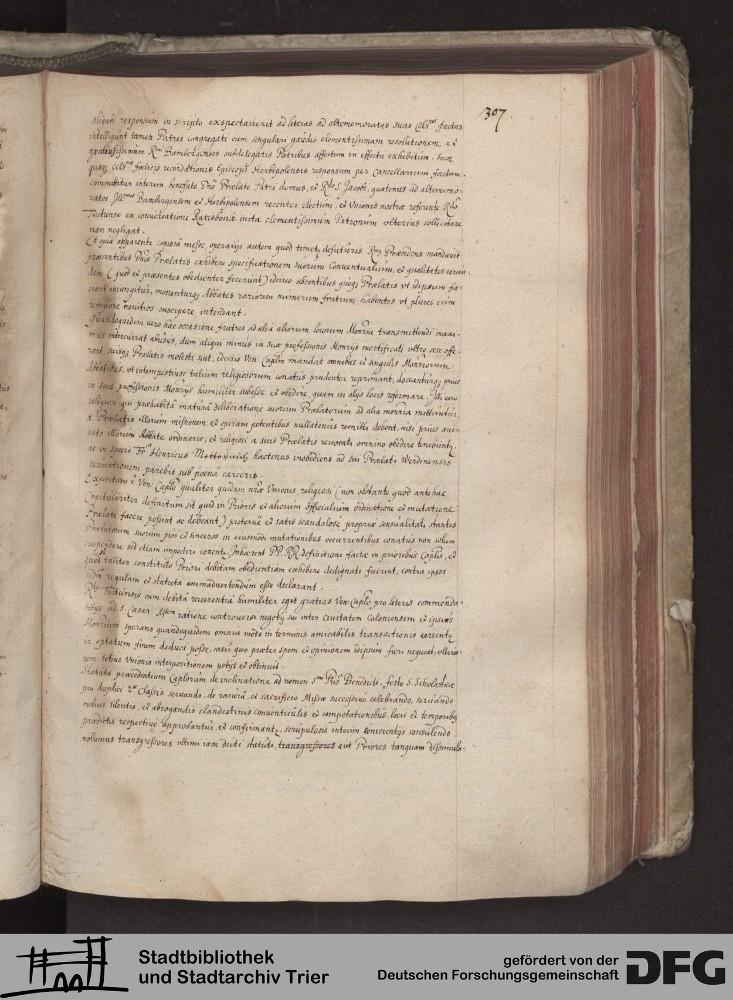 307.
aliquod responsum in scripto exspectaverit ad literas ad altememoratas suas Cels.nes factas
intelligunt tamen Patres Congregati cum singulari gaudio clementissimam resolutionem, et
gratiosissimum R.mi Bambergensis subdelegatis Patribus affectum in effectu exhibitum. Suæ
quoq; Cels.nis recordationis Episcopi Herbipolensis responsum per Cancellarium factum.
Committitur interim benefato Dño Prælato Patri domus, et R.do S. Jacobi, quatenus ad altememo-
ratos Ill.mos Bambergensem et Herbipolensem recenter electum, et Unionis nostræ referente R.do
Tuitiense ex conversatione Ratisbonæ inita clementissimum Patronum ulterius sollicitare
non negligat.
Et quia apparente copiosa messe, operarijs autem quod timet, defuturis R.mus Præsidens mandavit
præsentibus Dñis Prælatis exhibere specificationem suorum Conventualium, et qualitates eorun-
dem (quod et præsentes obedienter fecerunt) idcirco absentibus quoq; Prælatis ut idipsum fa-
ciant iniungitur, monenturq; Abbates rariorem numerum fratrum habentes ut plures cum
tempore novitios suscipere intendant.
Quandoquidem vero hac occasione fratres ad alia aliorum locorum Mon.ria transmittendi maxi-
mus intercurrat abusus, dum aliqui minus in suæ professionis Mon.rijs mortificati ultro sese offe-
rant, suisq; Prælatis molesti sint, idcirco Ven: Cap.lum mandat omnibus et singulis Mon.riorum
Abbatibus, ut intempestivos talium religiosorum conatus prudenter reprimant, doceantq; prius
in suis professionis Mon.rijs humiliter subesse et obedire, quam in alijs locis reformare. Illi vero
religiosi qui probabili matura deliberatione suorum Prælatorum ad alia mon.ria mittuntur,
a Prælatis illorum missionem, et operam petentibus nullatenus remitti debent, nisi prius avi-
sato illorum Abbate ordinario, et religiosi a suis Prælatis revocati omnino obedire teneburtur,
ac in specie Fr. Henricus hactenus inobediens ad sui Prælati Werdinensis
revocationem parebit sub poena carceris.
Expositum e Ven: Cap.lo qualiter quidam nræ Unionis religiosi (non obstante quod antehac
Capitulariter definitum sit quid in Prioris et aliorum officialium ordinatione et mutatione
Prælati facere possint ac debeant) proterve et satis scandalose propriæ sensualitati stantes
Prælatorum suorum pios et sinceros in eiusmodi mutationibus occurrentibus conatus non solum
suspendere sed etiam impedire conentur, Inhærent PP. RR. definitione factæ in prioribus Cap.lis, et
quod taliter constituto Priori debitam obedientiam exhibere dedignati fuerint, contra ipsos
s.dm regulam et statuta animadvertendum esse declarant.
R.dus Tuitiensis cum debita reverentia humiliter egit gratias Ven: Cap.lo pro literis commenda-
titijs ad S. Cæsar. M.tem ratione controversi negotij sui inter Civitatem Coloniensem et ipsius
Mon.rium sperans quandoquidem omnia modo in terminis amicabilis transactionis versentur,
in optatum finem deduci posse, casu quo præter spem et opinionem idipsum fieri nequeat, ulterio-
rem totius Unionis interpositionem petijt et obtinuit.
Statuta præcedentium Cap.lorum de inclinatione ad nomen S.mi Pris Benedicti, festo S. Scholasticæ
pro duplici 2.æ Classis servando, de rasura, et sacrificio Missæ successive celebrando, servando
melius silentio, et abrogandis clandestinis conventiculis et compotationibus, locis et temporibus
prædictis respective approbantur, et confirmantur, scrupulosis interim conscientijs consulendo
nolumus transgressores ultimi iam dicti statuti, transgressores aut Priores tanquam dissimula-
Stadtbibliothek
und Stadtarchiv Trier
gefördert von der
Deutschen Forschungsgemeinschaft
DFG